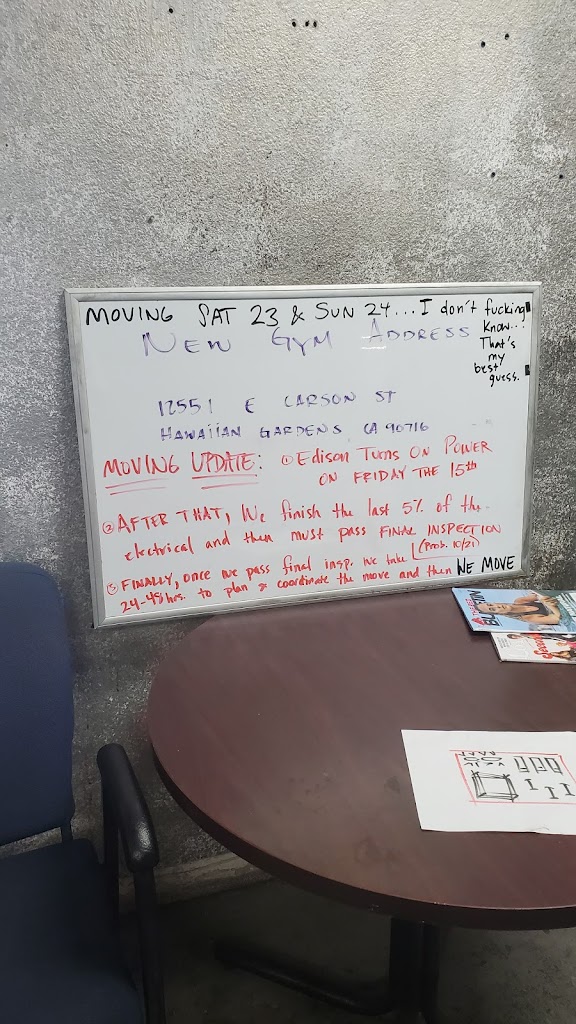 MOVING SAT 23 & SUN 24...I don't fucking
know..!
That's
my
best
guess.
NEW GYM ADDRESS
12551 E CARSON ST
HAWAIIAN GARDENS CA 90716
MOVING UPDATE: ① Edison Turns ON POWER
ON FRIDAY THE 15th
② AFTER THAT, We finish the last 5% of the
electrical and then must pass FINAL INSPECTION
(Prob. 10/21)
③ FINALLY, once we pass final insp. we take
24-48hrs. to plan & coordinate the move and then WE MOVE